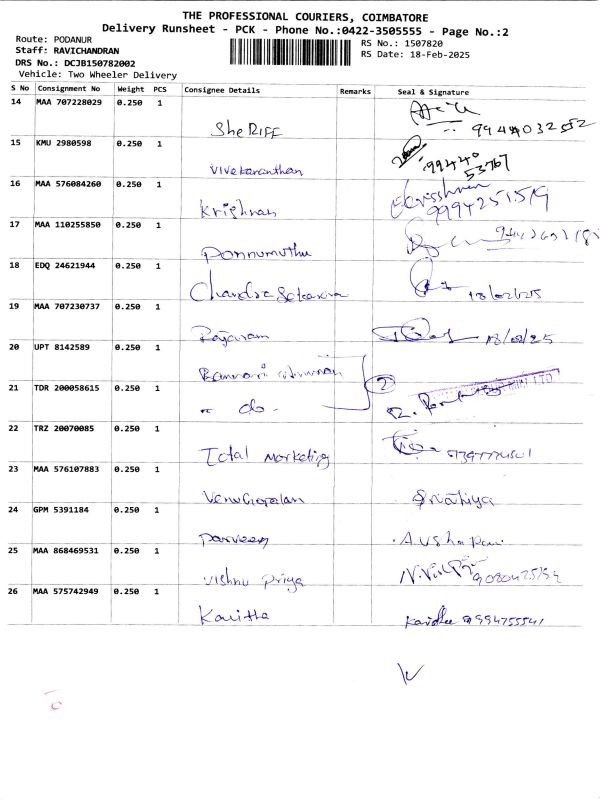 THE PROFESSIONAL COURIERS, COIMBATORE
Delivery Runsheet - PCK - Phone No.:0422-3505555 - Page No.:2
Route: PODANUR
RS No.: 1507820
Staff: RAVICHANDRAN
RS Date: 18-Feb-2025
DRS No.: DCJB150782002
Vehicle: Two Wheeler Delivery
S No Consignment No Weight PCS Consignee Details Remarks Seal & Signature
14 MAA 707228029 0.250 1
SheRIFF
15 KMU 2980598 0.250 1
Vivekananthan 99440
53767
16 MAA 576084260 0.250 1
Krishnan
17 MAA 110255850 0.250 1
Ponnumuthu
18 EDQ 24621944 0.250 1
Chandra Sekaran 18/02/25
19 MAA 707230737 0.250 1
Rajaram 18/02/25
20 UPT 8142589 0.250 1
21 TDR 200058615 0.250 1
2
do
22 TRZ 20070085 0.250 1
Total Marketing
23 MAA 576107883 0.250 1
VenuGopalan
24 GPM 5391184 0.250 1
Parveen
25 MAA 868469531 0.250 1
Vishnu Priya
26 MAA 575742949 0.250 1
Kavitha 9994755541